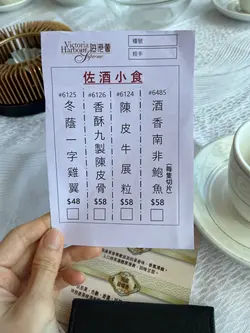 Victoria Harbour
Supreme
海港薈
檯號
經手
佐酒小食
#6125
冬蔭一字雞翼
$48
#6126
香酥九製陳皮骨
$58
#6124
陳皮牛展粒
$58
#6485
酒香南非鮑魚
(每隻切片)
$58